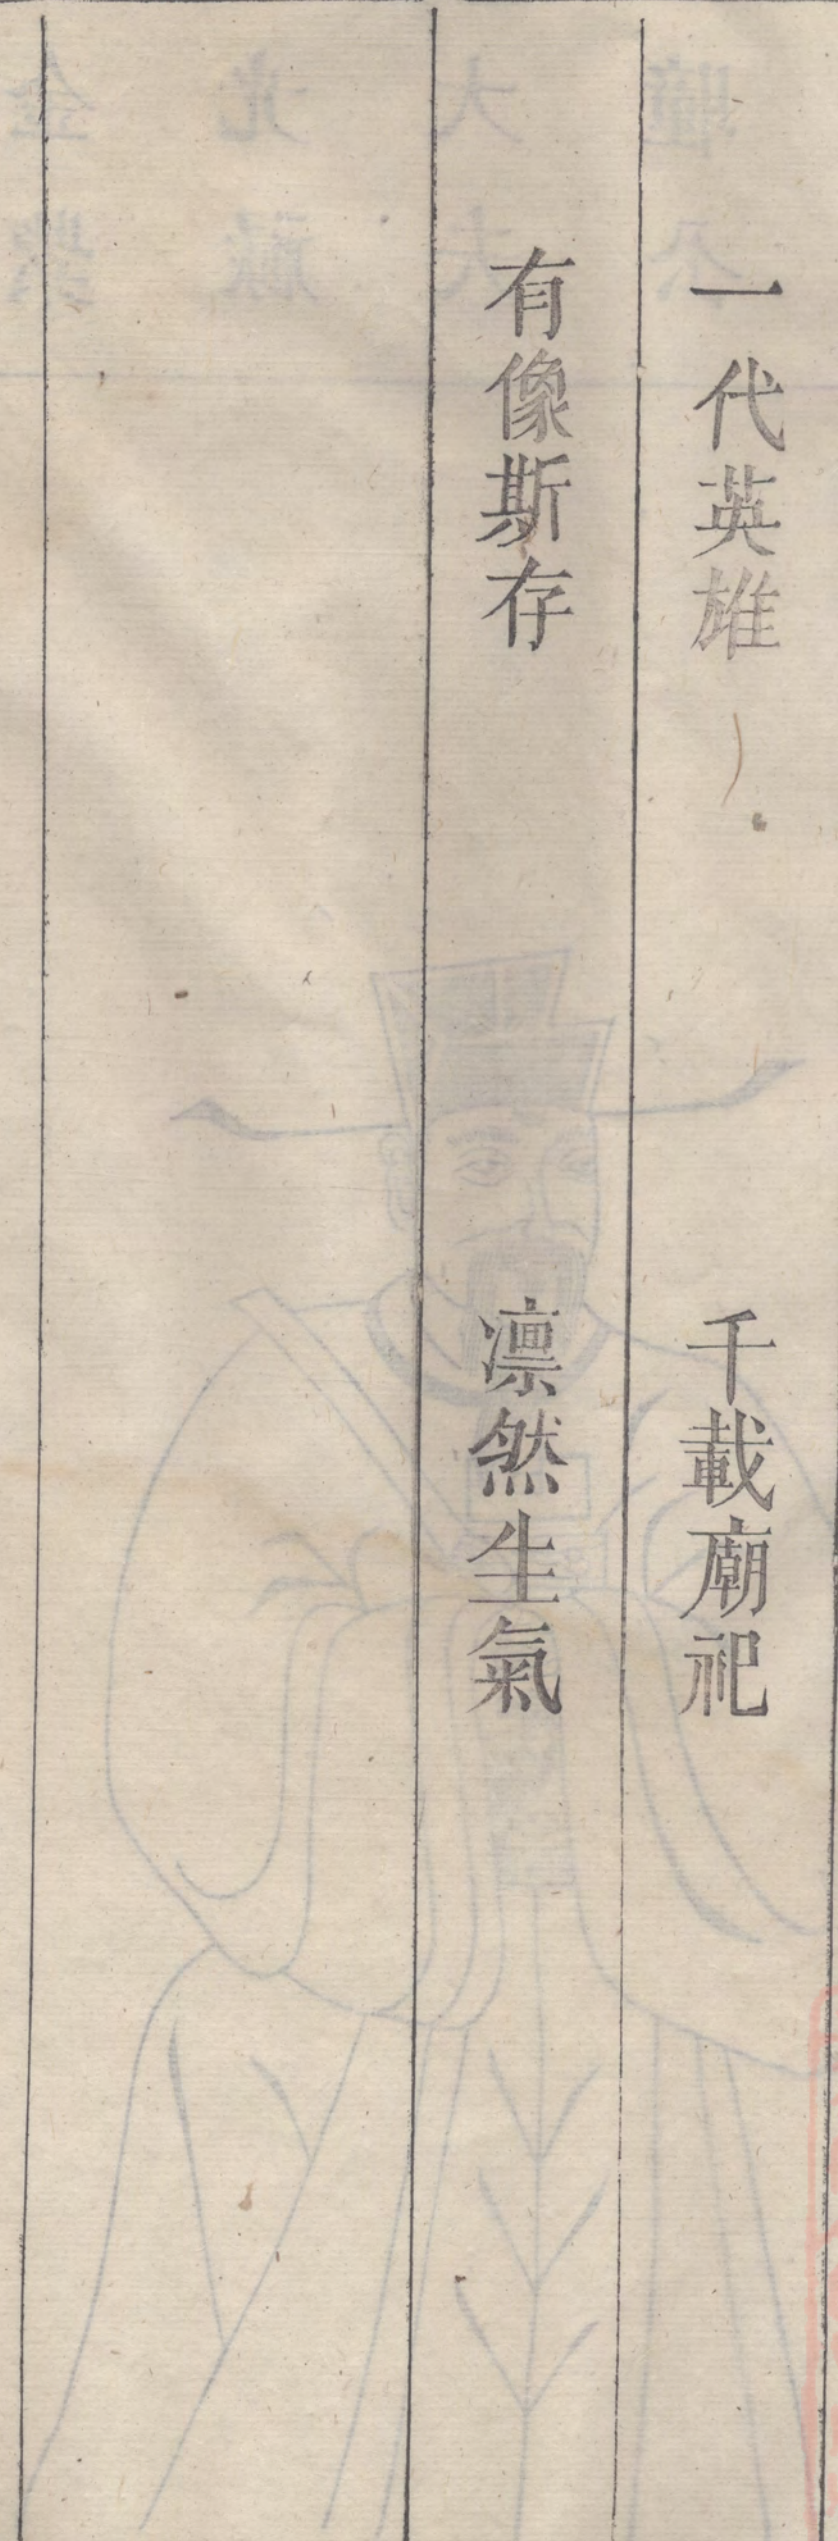 一代英雄　千載廟祀
有像斯存　凛然生氣